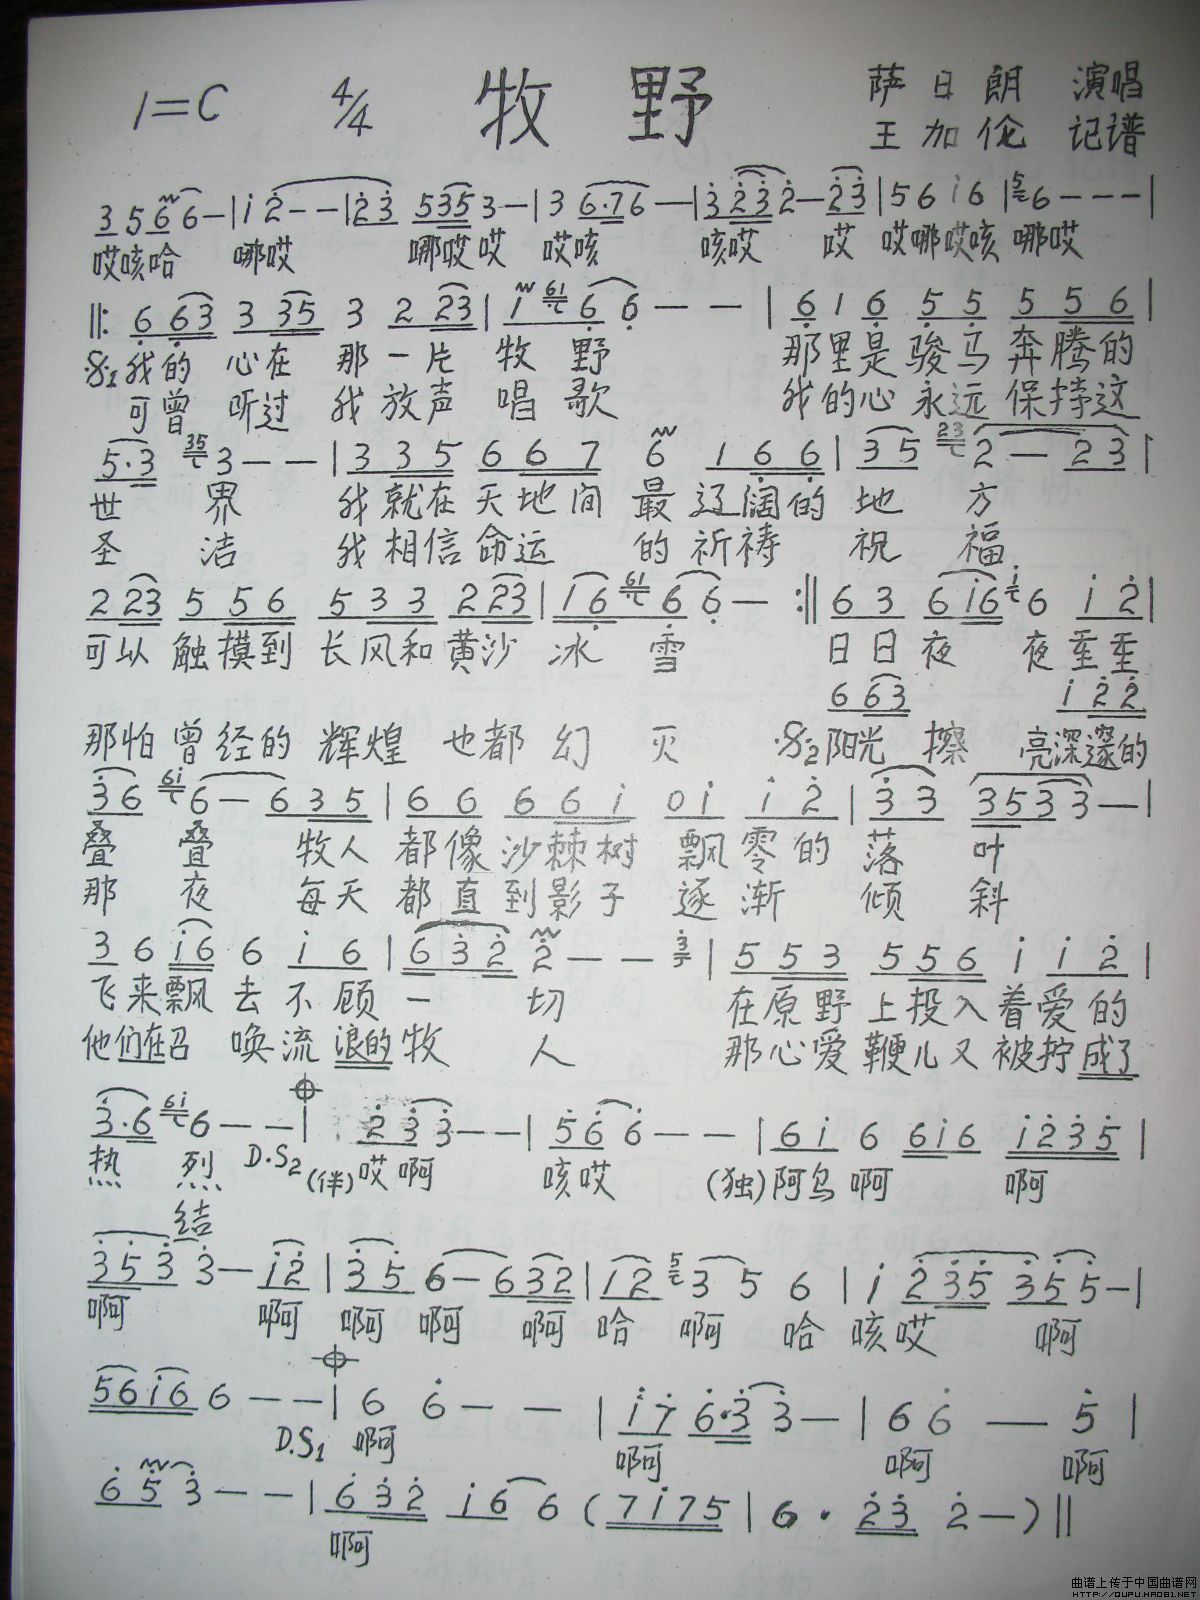 1=C 4/4 牧野 萨日朗 演唱
王加伦 记谱
3 5 6 6 — | i 2 — — | 2 3 5 3 5 3 — | 3 6·7 6 — | 3 2 3 2 — 2 3 | 5 6 i 6 | 6 — — — |
哎咳哈 哪哎 哪哎哎 哎咳 咳哎 哎 哎哪哎咳 哪哎
‖: 6 6 3 3 3 5 3 2 2 3 | 1 6 6 — — | 6 1 6 5 5 5 5 6 |
我的 心在 那一片 牧野 那里是骏马奔腾的
可曾 听过 我放声 唱歌 我的心永远保持这
5·3 3 — — | 3 3 5 6 6 7 6 1 6 6 | 3 5 2 — 2 3 |
世界 我就在天地间 最辽阔的 地方
圣洁 我相信命运 的祈祷 祝福
2 2 3 5 5 6 5 3 3 2 2 3 | 1 6 6 6 — :‖ 6 3 6 i 6 6 i 2 |
可以 触摸到 长风和黄沙 冰雪 日日夜 夜至至
6 6 3 i 2 2
那怕曾经的辉煌 也都幻灭 阳光 擦 亮深邃的
3 6 6 — 6 3 5 | 6 6 6 6 i 0 i i 2 | 3 3 3 5 3 3 — |
叠叠 牧人都像沙棘树 飘零的 落叶
那夜 每天都直到影子 逐渐 倾斜
3 6 i 6 6 i 6 | 6 3 2 2 — — | 5 5 3 5 5 6 i i 2 |
飞来飘去不顾一切 在原野上投入着爱的
他们在召唤流浪的牧人 那心爱鞭儿又被拧成了
3·6 6 — — | 2 3 3 — — | 5 6 6 — — | 6 i 6 6 i 6 i 2 3 5 |
热烈 D.S2 (伴)哎啊 咳哎 (独)阿乌啊 啊
结
3 5 3 3 — i 2 | 3 5 6 — 6 3 2 | i 2 3 5 6 | i 2 3 5 3 5 5 — |
啊 啊 啊 啊 啊 哈 啊 哈 咳哎 啊
5 6 i 6 6 — — | 6 6 — — | i 7 6·3 3 — | 6 6 — 5 |
D.S1 啊 啊 啊 啊
6 5 3 — — | 6 3 2 i 6 6 ( 7 i 7 5 | 6 · 2 3 2 — ) ‖
啊
曲谱上传于中国曲谱网
HTTP://QUPU.HAO81.NET